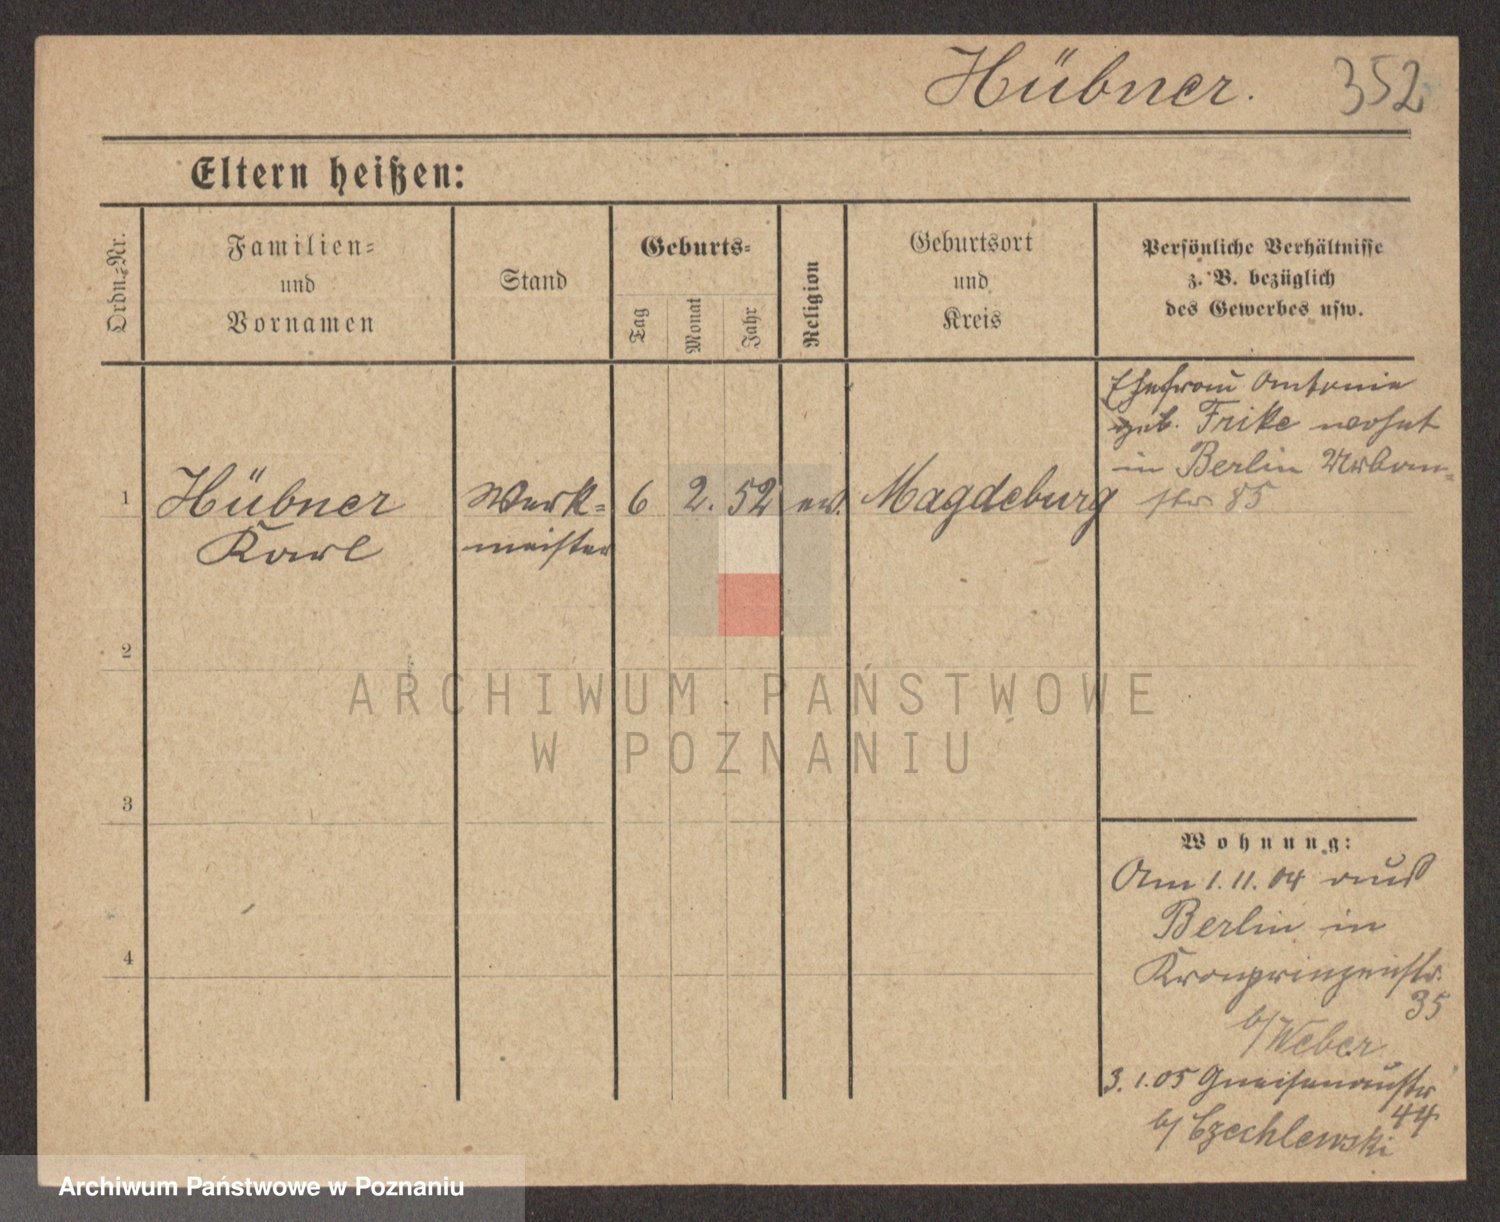 Hübner. 352
Eltern heißen:
Ordn.-Nr.
Familien-
und
Vornamen
Stand
Geburts-
Tag
Monat
Jahr
Religion
Geburtsort
und
Kreis
Persönliche Verhältnisse
z. B. bezüglich
des Gewerbes usw.
1
Hübner
Karl
Werk-
meister
6
2.
52
ev.
Magdeburg
Ehefrau Antonie
geb. Frike wohnt
in Berlin Urban-
str 85
2
3
4
Wohnung:
Am 1.11.04 aus
Berlin in
Kronprinzenstr.
35
b/ Weber
3.1.05 Gneisenaustr
44
b/ Czechlewski
ARCHIWUM PAŃSTWOWE
W POZNANIU
Archiwum Państwowe w Poznaniu